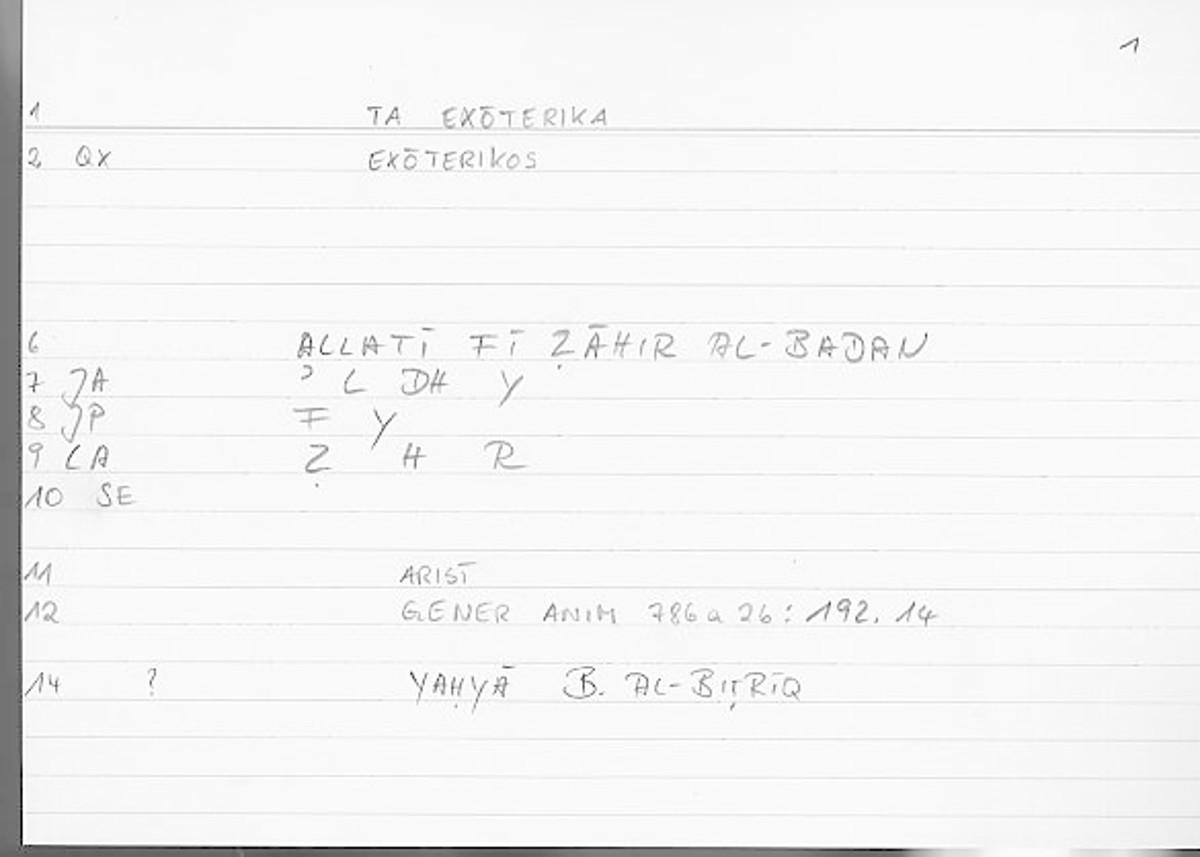 1
1 TA EXŌTERIKA
2 QX EXŌTERIKOS
6 ALLATĪ FĪ ẒĀHIR AL-BADAN
7 JA ʾ L DH Y
8 JP F Y
9 LA Ẓ H R
10 SE
11 ARIST
12 GENER ANIM 786a26: 192.14
14 ? YAḤYĀ B. AL-BIṬRĪQ